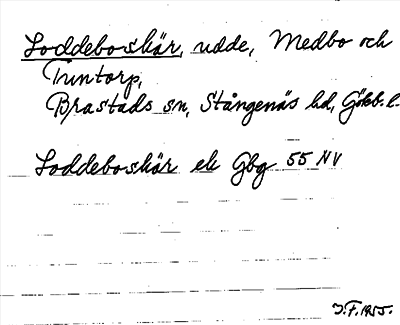 Loddeboskär, udde, Medbo och
Tuntorp,
Brastads sn, Stångenäs hd, Gökb. l.
Loddeboskär ek Gbg 55 NV
J.F. 1955.